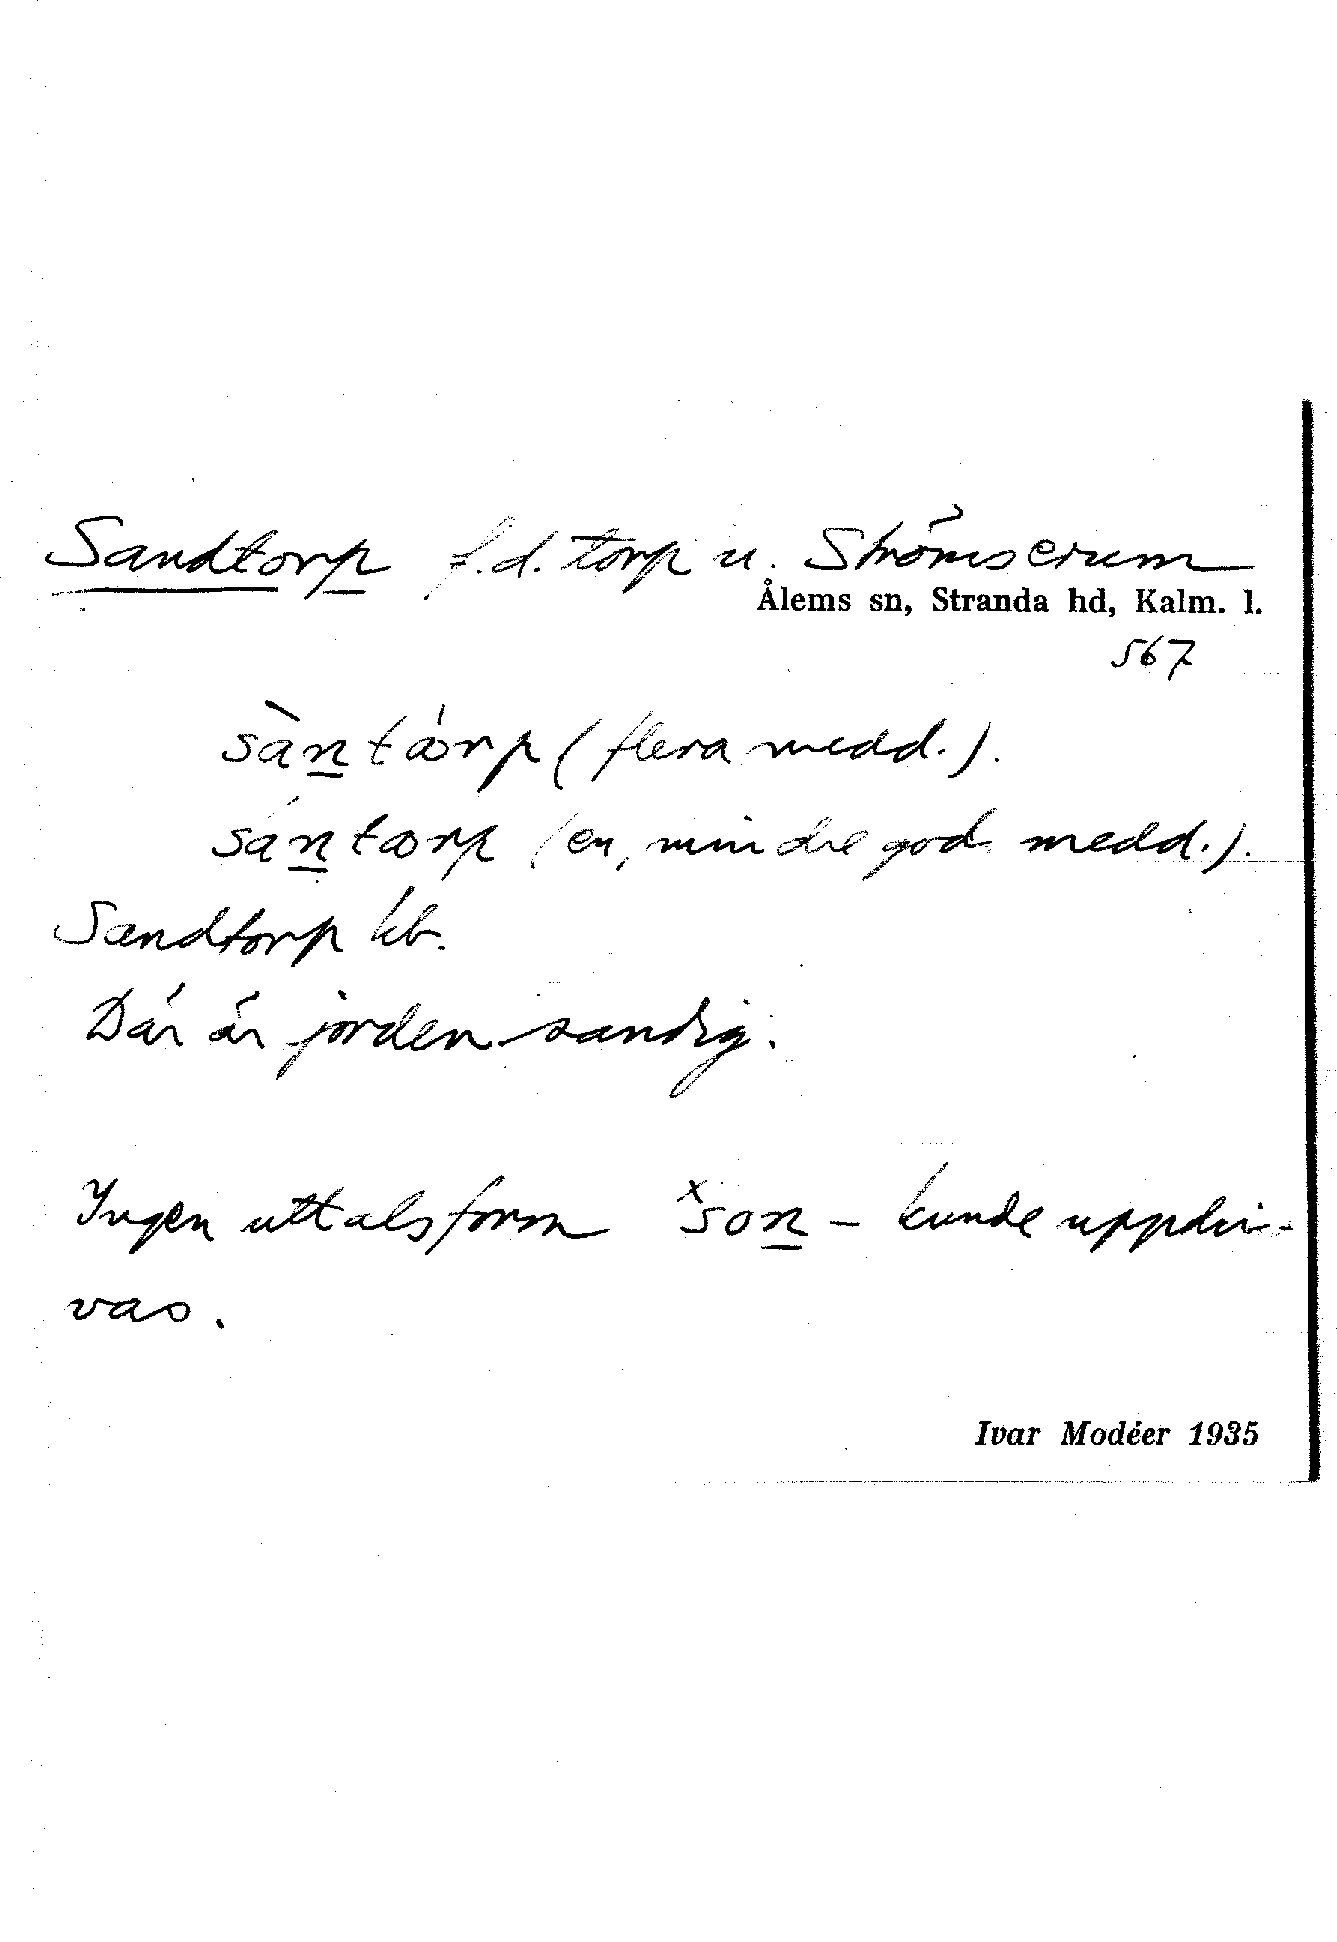 Sandtorp f.d. torp u. Strömserum
Ålems sn, Stranda hd, Kalm. l.
567
sàn̲tǿrp (flera medd.).
sán̲tœrp (en, mindre god medd.).
Sandtorp kb.
Där är jorden sandig.
Ingen uttalsform ˣson̲ – kunde uppdri-
vas.
Ivar Modéer 1935